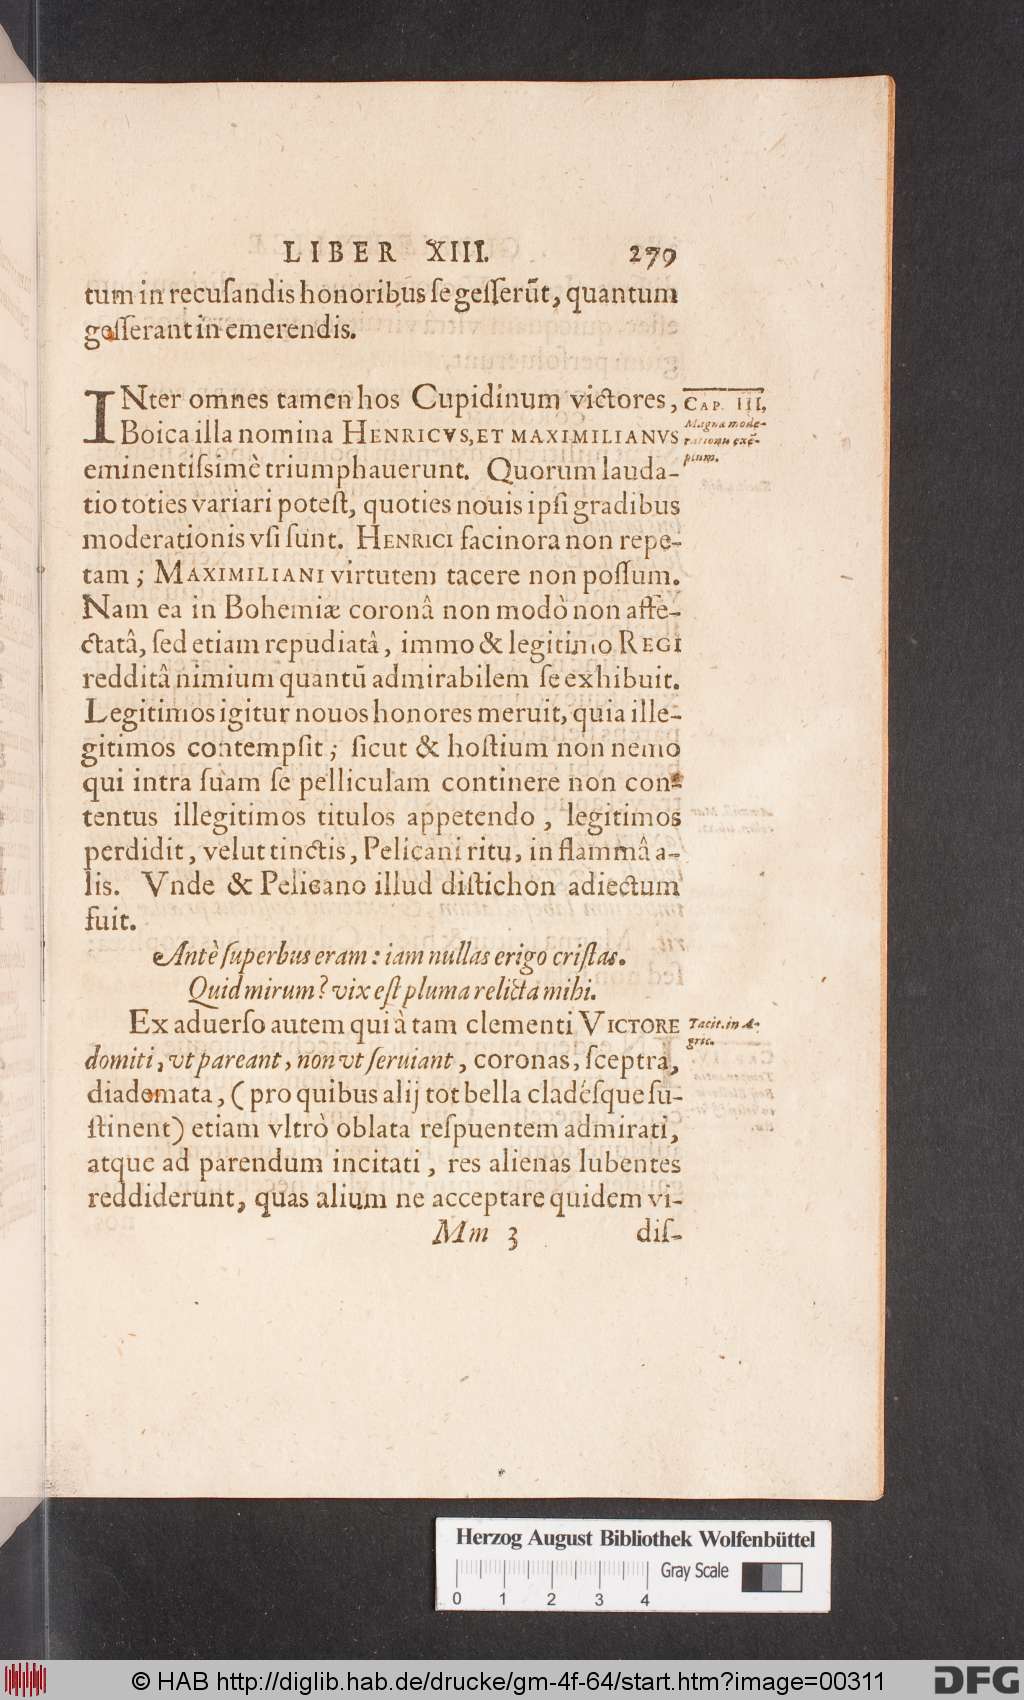 LIBER XIII. 279
tum in recusandis honoribus se gesserūt, quantum
gesserant in emerendis.
INter omnes tamen hos Cupidinum victores,
CAP. III.
Boica illa nomina HENRICVS, ET MAXIMILIANVS
Magna mode-
rationis exē-
plum.
eminentissimè triumphauerunt. Quorum lauda-
tio toties variari potest, quoties nouis ipsi gradibus
moderationis vsi sunt. HENRICI facinora non repe-
tam; MAXIMILIANI virtutem tacere non possum.
Nam ea in Bohemiæ coronâ non modò non affe-
ctatâ, sed etiam repudiatâ, immo & legitimo REGI
redditâ nimium quantū admirabilem se exhibuit.
Legitimos igitur nouos honores meruit, quia ille-
gitimos contempsit; sicut & hostium non nemo
qui intra suam se pelliculam continere non con-
tentus illegitimos titulos appetendo, legitimos
perdidit, velut tinctis, Pelicani ritu, in flammâ a-
lis. Vnde & Pelicano illud distichon adiectum
fuit.
Antè superbus eram: iam nullas erigo cristas.
Quid mirum? vix est pluma relicta mihi.
Ex aduerso autem qui à tam clementi VICTORE
Tacit. in A-
gric.
domiti, vt pareant, non vt seruiant, coronas, sceptra,
diademata, (pro quibus alij tot bella cladésque su-
stinent) etiam vltrò oblata respuentem admirati,
atque ad parendum incitati, res alienas lubentes
reddiderunt, quas alium ne acceptare quidem vi-
Mm 3 dis-
Herzog August Bibliothek Wolfenbüttel
Gray Scale
0 1 2 3 4
© HAB http://diglib.hab.de/drucke/gm-4f-64/start.htm?image=00311
DFG